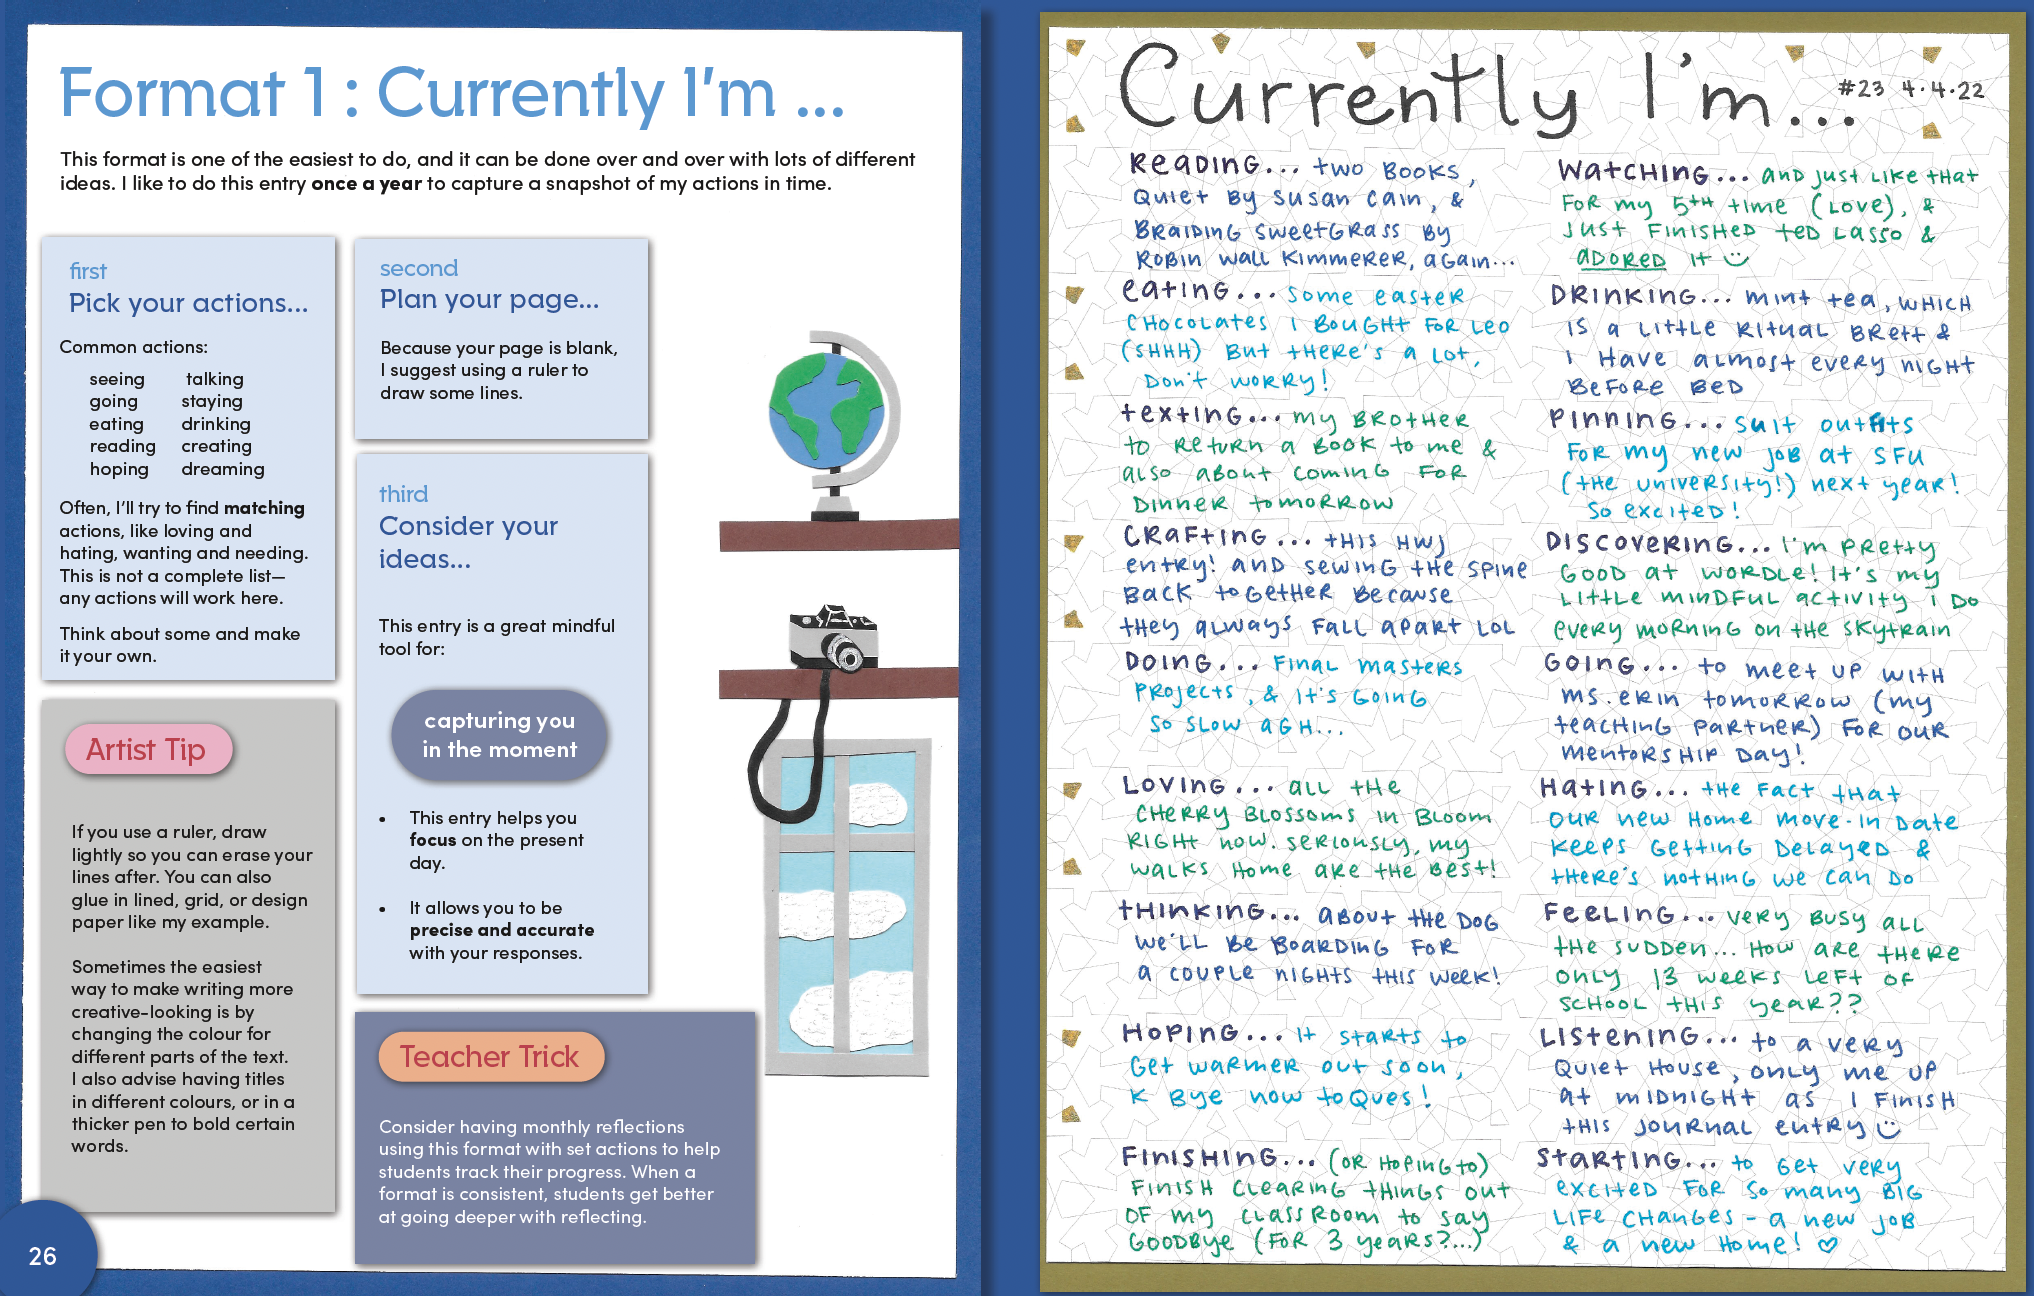 Format 1 : Currently I'm ...
This format is one of the easiest to do, and it can be done over and over with lots of different
ideas. I like to do this entry once a year to capture a snapshot of my actions in time.
first
Pick your actions...
Common actions:
seeing talking
going staying
eating drinking
reading creating
hoping dreaming
Often, I'll try to find matching
actions, like loving and
hating, wanting and needing.
This is not a complete list—
any actions will work here.
Think about some and make
it your own.
Artist Tip
If you use a ruler, draw
lightly so you can erase your
lines after. You can also
glue in lined, grid, or design
paper like my example.
Sometimes the easiest
way to make writing more
creative-looking is by
changing the colour for
different parts of the text.
I also advise having titles
in different colours, or in a
thicker pen to bold certain
words.
26
second
Plan your page...
Because your page is blank,
I suggest using a ruler to
draw some lines.
third
Consider your
ideas...
This entry is a great mindful
tool for:
capturing you
in the moment
• This entry helps you
focus on the present
day.
• It allows you to be
precise and accurate
with your responses.
Teacher Trick
Consider having monthly reflections
using this format with set actions to help
students track their progress. When a
format is consistent, students get better
at going deeper with reflecting.
Currently I'm... #23 4.4.22
READING... TWO BOOKS,
QUIET BY SUSAN CAIN, &
BRAIDING SWEETGRASS BY
ROBIN WALL KIMMERER, AGAIN...
EATING... SOME EASTER
CHOCOLATES I BOUGHT FOR LEO
(SHHH) BUT THERE'S A LOT,
DON'T WORRY!
TEXTING... MY BROTHER
TO RETURN A BOOK TO ME &
ALSO ABOUT COMING FOR
DINNER TOMORROW
CRAFTING... THIS HWJ
ENTRY! AND SEWING THE SPINE
BACK TOGETHER BECAUSE
THEY ALWAYS FALL APART LOL
DOING... FINAL MASTERS
PROJECTS, & IT'S GOING
SO SLOW AGH...
LOVING... ALL THE
CHERRY BLOSSOMS IN BLOOM
RIGHT NOW. SERIOUSLY, MY
WALKS HOME ARE THE BEST!
THINKING... ABOUT THE DOG
WE'LL BE BOARDING FOR
A COUPLE NIGHTS THIS WEEK!
HOPING... IT STARTS TO
GET WARMER OUT SOON,
K BYE NOW TOQUES!
FINISHING... (OR HOPING TO)
FINISH CLEARING THINGS OUT
OF MY CLASSROOM TO SAY
GOODBYE (FOR 3 YEARS?...)
WATCHING... AND JUST LIKE THAT
FOR MY 5TH TIME (LOVE), &
JUST FINISHED TED LASSO &
ADORED IT
DRINKING... MINT TEA, WHICH
IS A LITTLE RITUAL BRETT &
I HAVE ALMOST EVERY NIGHT
BEFORE BED
PINNING... SUIT OUTFITS
FOR MY NEW JOB AT SFU
(THE UNIVERSITY!) NEXT YEAR!
SO EXCITED!
DISCOVERING... I'M PRETTY
GOOD AT WORDLE! IT'S MY
LITTLE MINDFUL ACTIVITY I DO
EVERY MORNING ON THE SKYTRAIN
GOING... TO MEET UP WITH
MS. ERIN TOMORROW (MY
TEACHING PARTNER) FOR OUR
MENTORSHIP DAY!
HATING... THE FACT THAT
OUR NEW HOME MOVE-IN DATE
KEEPS GETTING DELAYED &
THERE'S NOTHING WE CAN DO
FEELING... VERY BUSY ALL
THE SUDDEN... HOW ARE THERE
ONLY 13 WEEKS LEFT OF
SCHOOL THIS YEAR??
LISTENING... TO A VERY
QUIET HOUSE, ONLY ME UP
AT MIDNIGHT AS I FINISH
THIS JOURNAL ENTRY
STARTING... TO GET VERY
EXCITED FOR SO MANY BIG
LIFE CHANGES - A NEW JOB
& A NEW HOME!